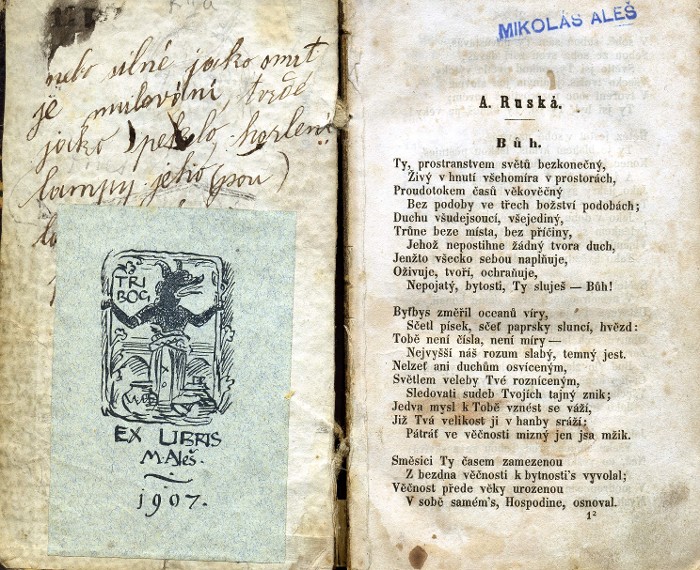 nebo silné jako smrt
je milování, tvrdé
jako peklo, horlení
lampy jeho (jsou)
TRI
BOG
EX LIBRIS
M. Aleš.
1907.
MIKOLÁŠ ALEŠ
A. Ruská.
Bůh.
Ty, prostranstvem světů bezkonečný,
Živý v hnutí všehomíra v prostorách,
Proudotokem časů věkověčný
Bez podoby ve třech božství podobách;
Duchu všudejsoucí, všejediný,
Trůne beze místa, bez příčiny,
Jehož nepostihne žádný tvora duch,
Jenžto všecko sebou naplňuje,
Oživuje, tvoří, ochraňuje,
Nepojatý, bytosti, Ty sluješ — Bůh!
Byťbys změřil oceanů víry,
Sčetl písek, sčeť paprsky sluncí, hvězd:
Tobě není čísla, není míry —
Nejvyšší náš rozum slabý, temný jest.
Nelzeť ani duchům osvíceným,
Světlem veleby Tvé rozníceným,
Sledovati sudeb Tvojích tajný znik;
Jedva mysl k Tobě vznést se váží,
Již Tvá velikost ji v hanby sráží;
Pátráť ve věčnosti mizný jen jsa mžik.
Směsici Ty časem zamezenou
Z bezdna věčnosti k bytnosti's vyvolal;
Věčnost přede věky urozenou
V sobě samém's, Hospodine, osnoval.
1²